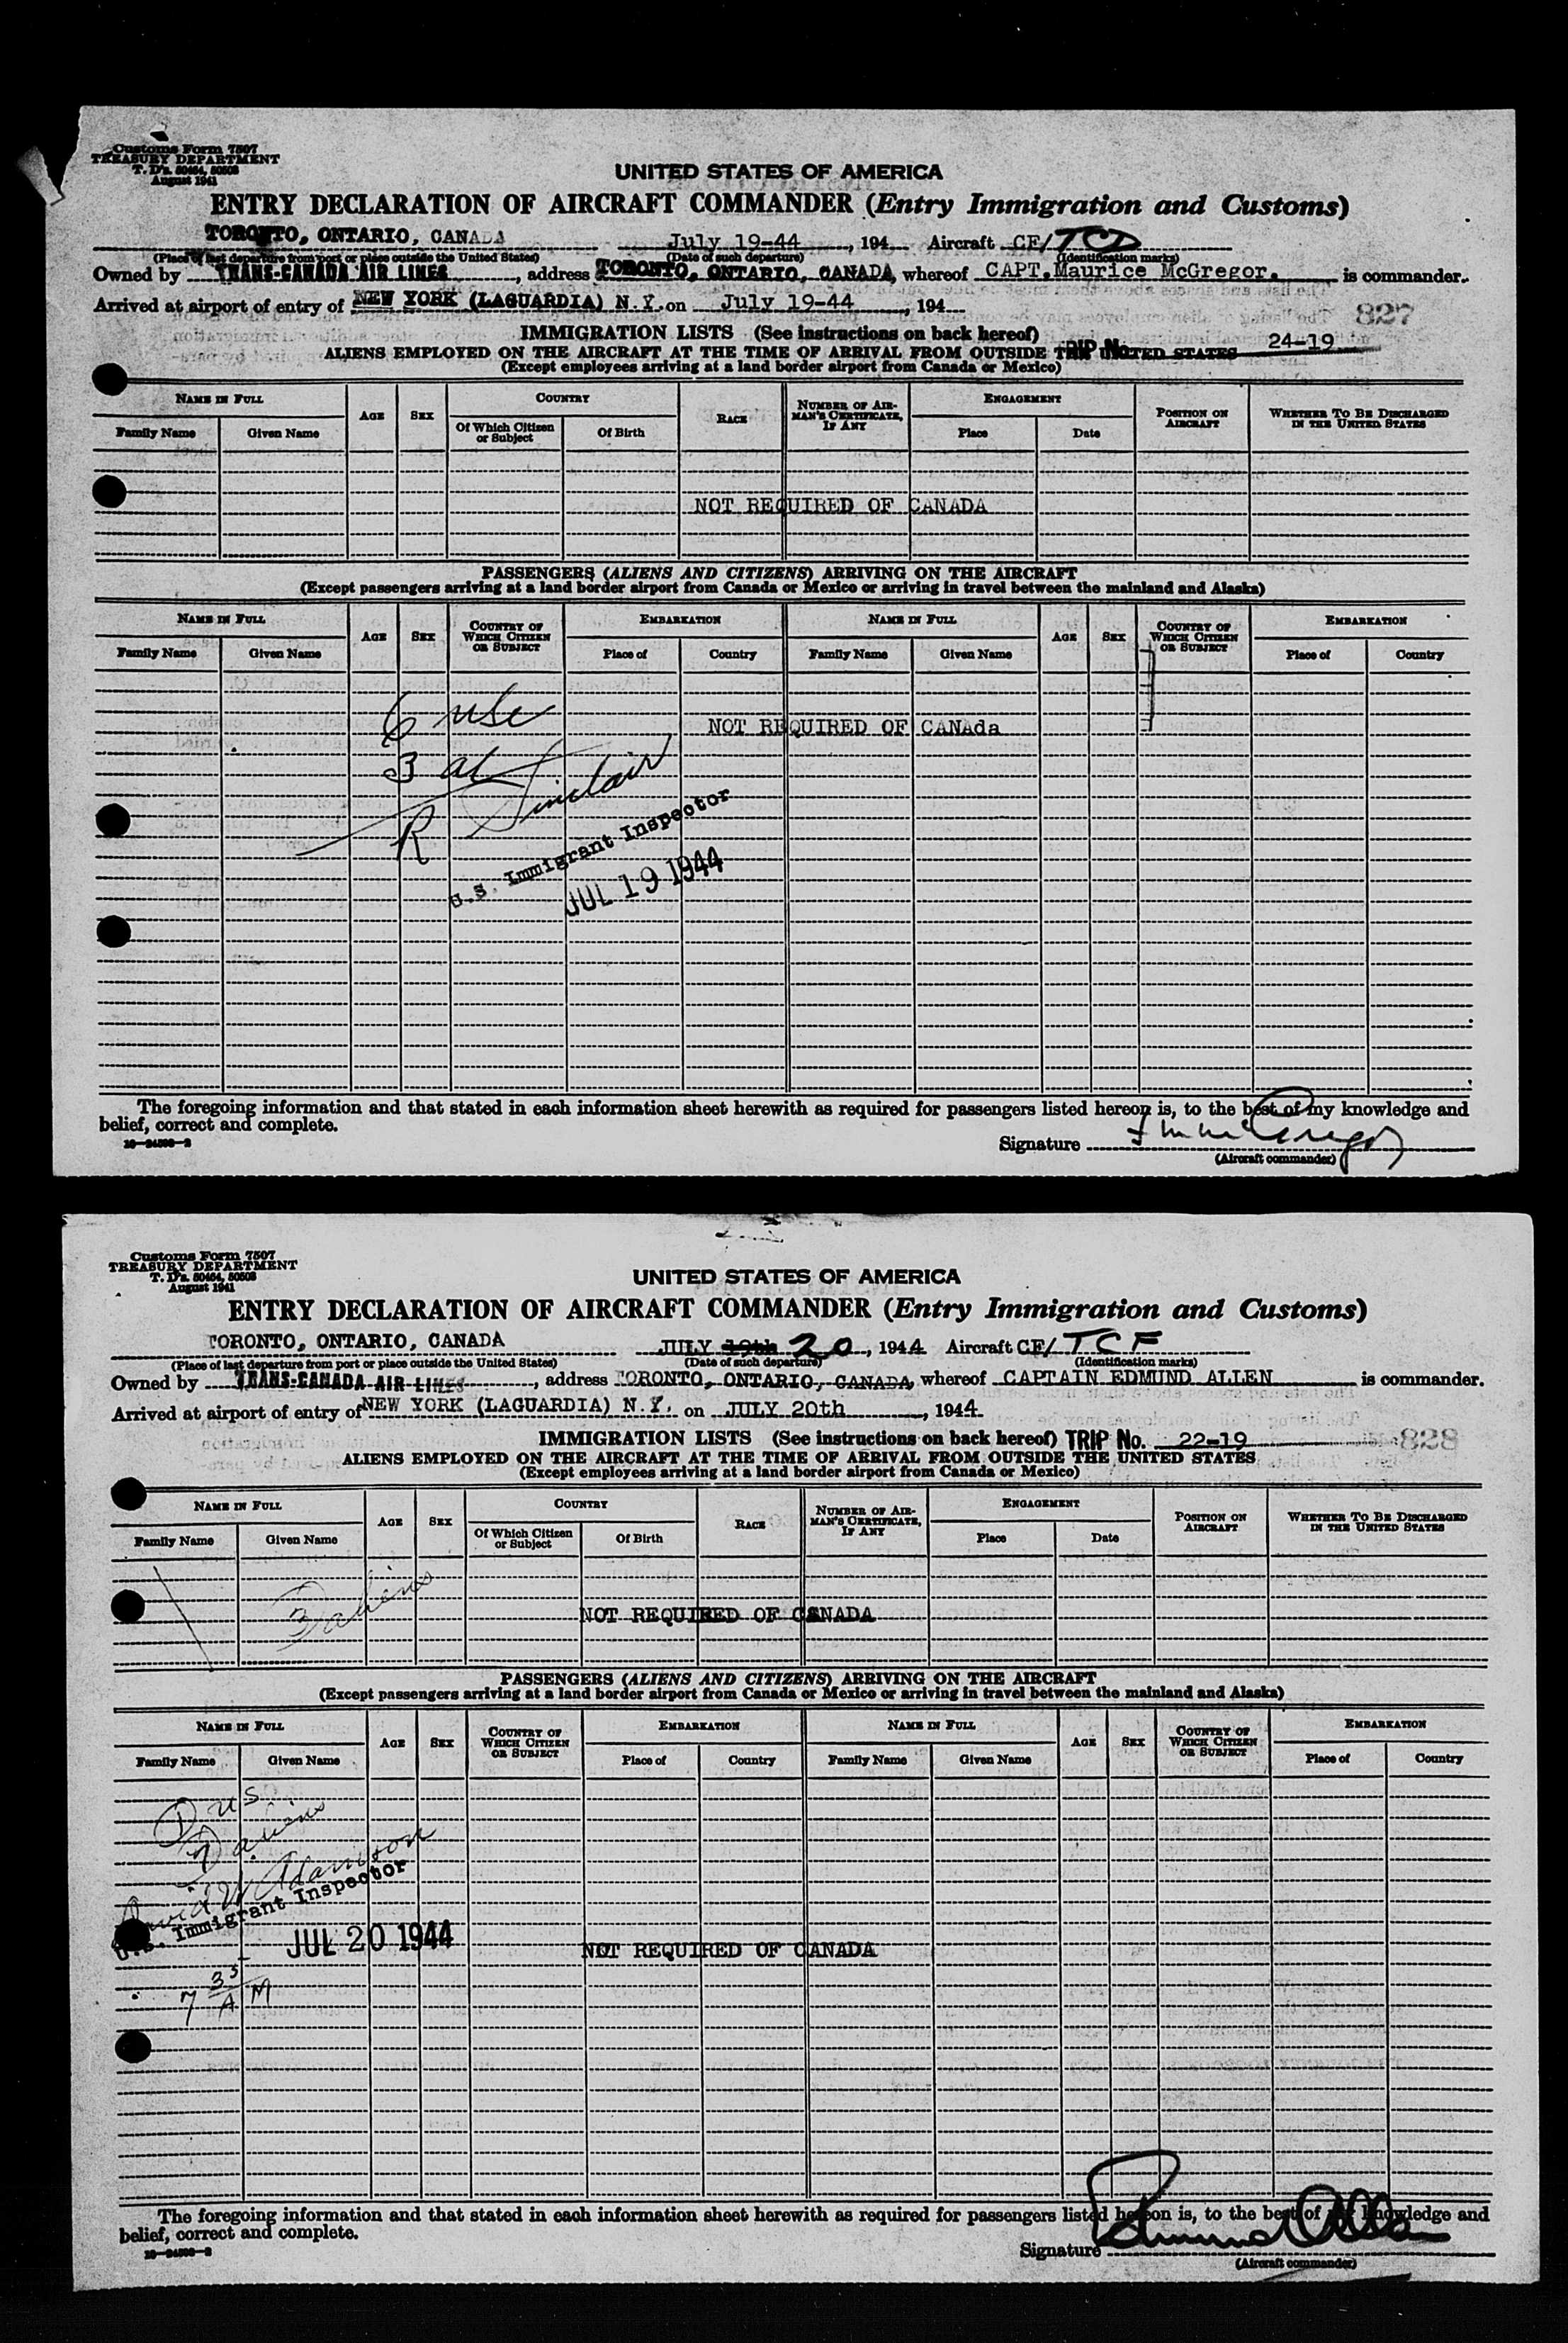 Customs Form 7507
TREASURY DEPARTMENT
T. D's. 50464, 50508
August 1941
UNITED STATES OF AMERICA
ENTRY DECLARATION OF AIRCRAFT COMMANDER (Entry Immigration and Customs)
TORONTO, ONTARIO, CANADA July 19-44, 194 Aircraft CF/TCD
(Place of last departure from port or place outside the United States) (Date of such departure) (Identification marks)
Owned by TRANS-CANADA AIR LINES, address TORONTO, ONTARIO, CANADA, whereof CAPT. Maurice McGregor. is commander.
Arrived at airport of entry of NEW YORK (LAGUARDIA) N.Y. on July 19-44, 194
827
IMMIGRATION LISTS (See instructions on back hereof)
TRIP No. 24-19
ALIENS EMPLOYED ON THE AIRCRAFT AT THE TIME OF ARRIVAL FROM OUTSIDE THE UNITED STATES
(Except employees arriving at a land border airport from Canada or Mexico)
NAME IN FULL AGE SEX COUNTRY RACE NUMBER OF AIRMAN'S CERTIFICATE, IF ANY ENGAGEMENT POSITION ON AIRCRAFT WHETHER TO BE DISCHARGED IN THE UNITED STATES
Family Name Given Name Of Which Citizen or Subject Of Birth Place Date
NOT REQUIRED OF CANADA
PASSENGERS (ALIENS AND CITIZENS) ARRIVING ON THE AIRCRAFT
(Except passengers arriving at a land border airport from Canada or Mexico or arriving in travel between the mainland and Alaska)
NAME IN FULL AGE SEX COUNTRY OF WHICH CITIZEN OR SUBJECT EMBARKATION NAME IN FULL AGE SEX COUNTRY OF WHICH CITIZEN OR SUBJECT EMBARKATION
Family Name Given Name Place of Country Family Name Given Name Place of Country
6 usc
NOT REQUIRED OF CANAda
3 al
R Sinclair
U.S. Immigrant Inspector
JUL 19 1944
The foregoing information and that stated in each information sheet herewith as required for passengers listed hereon is, to the best of my knowledge and
belief, correct and complete.
16-24500-2
Signature
(Aircraft commander)
Customs Form 7507
TREASURY DEPARTMENT
T. D's. 50464, 50508
August 1941
UNITED STATES OF AMERICA
ENTRY DECLARATION OF AIRCRAFT COMMANDER (Entry Immigration and Customs)
TORONTO, ONTARIO, CANADA JULY 19th 20, 1944 Aircraft CF/TCF
(Place of last departure from port or place outside the United States) (Date of such departure) (Identification marks)
Owned by TRANS-CANADA AIR LINES, address TORONTO, ONTARIO, CANADA, whereof CAPTAIN EDMUND ALLEN is commander.
Arrived at airport of entry of NEW YORK (LAGUARDIA) N.Y. on JULY 20th, 1944
IMMIGRATION LISTS (See instructions on back hereof) TRIP No. 22-19
828
ALIENS EMPLOYED ON THE AIRCRAFT AT THE TIME OF ARRIVAL FROM OUTSIDE THE UNITED STATES
(Except employees arriving at a land border airport from Canada or Mexico)
NAME IN FULL AGE SEX COUNTRY RACE NUMBER OF AIRMAN'S CERTIFICATE, IF ANY ENGAGEMENT POSITION ON AIRCRAFT WHETHER TO BE DISCHARGED IN THE UNITED STATES
Family Name Given Name Of Which Citizen or Subject Of Birth Place Date
3 aliens
NOT REQUIRED OF CANADA
PASSENGERS (ALIENS AND CITIZENS) ARRIVING ON THE AIRCRAFT
(Except passengers arriving at a land border airport from Canada or Mexico or arriving in travel between the mainland and Alaska)
NAME IN FULL AGE SEX COUNTRY OF WHICH CITIZEN OR SUBJECT EMBARKATION NAME IN FULL AGE SEX COUNTRY OF WHICH CITIZEN OR SUBJECT EMBARKATION
Family Name Given Name Place of Country Family Name Given Name Place of Country
1 us
7 aliens
David W Adamson
U.S. Immigrant Inspector
JUL 20 1944
NOT REQUIRED OF CANADA
7 35 AM
The foregoing information and that stated in each information sheet herewith as required for passengers listed hereon is, to the best of my knowledge and
belief, correct and complete.
16-24500-2
Signature Edmund Allen
(Aircraft commander)